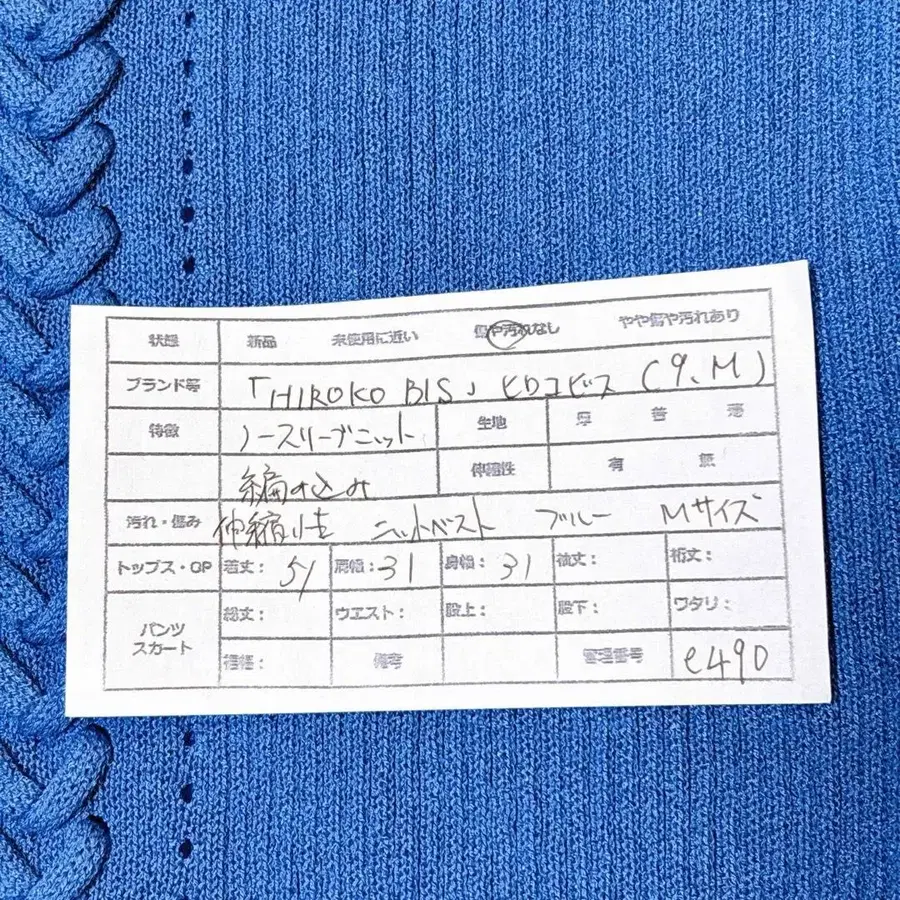 状態 新品 未使用に近い 傷や汚れなし やや傷や汚れあり
ブランド等 「HIROKO BIS」ヒロコビス (9、M)
特徴 ノースリーブニット 生地 厚 普 薄
編み込み 伸縮性 有 無
汚れ・傷み 伸縮性 ニットベスト ブルー Mサイズ
トップス・OP 着丈: 51 肩幅: 31 身幅: 31 袖丈: 裄丈:
パンツ スカート 総丈: ウエスト: 股上: 股下: ワタリ:
裾幅: 備考 管理番号 e490